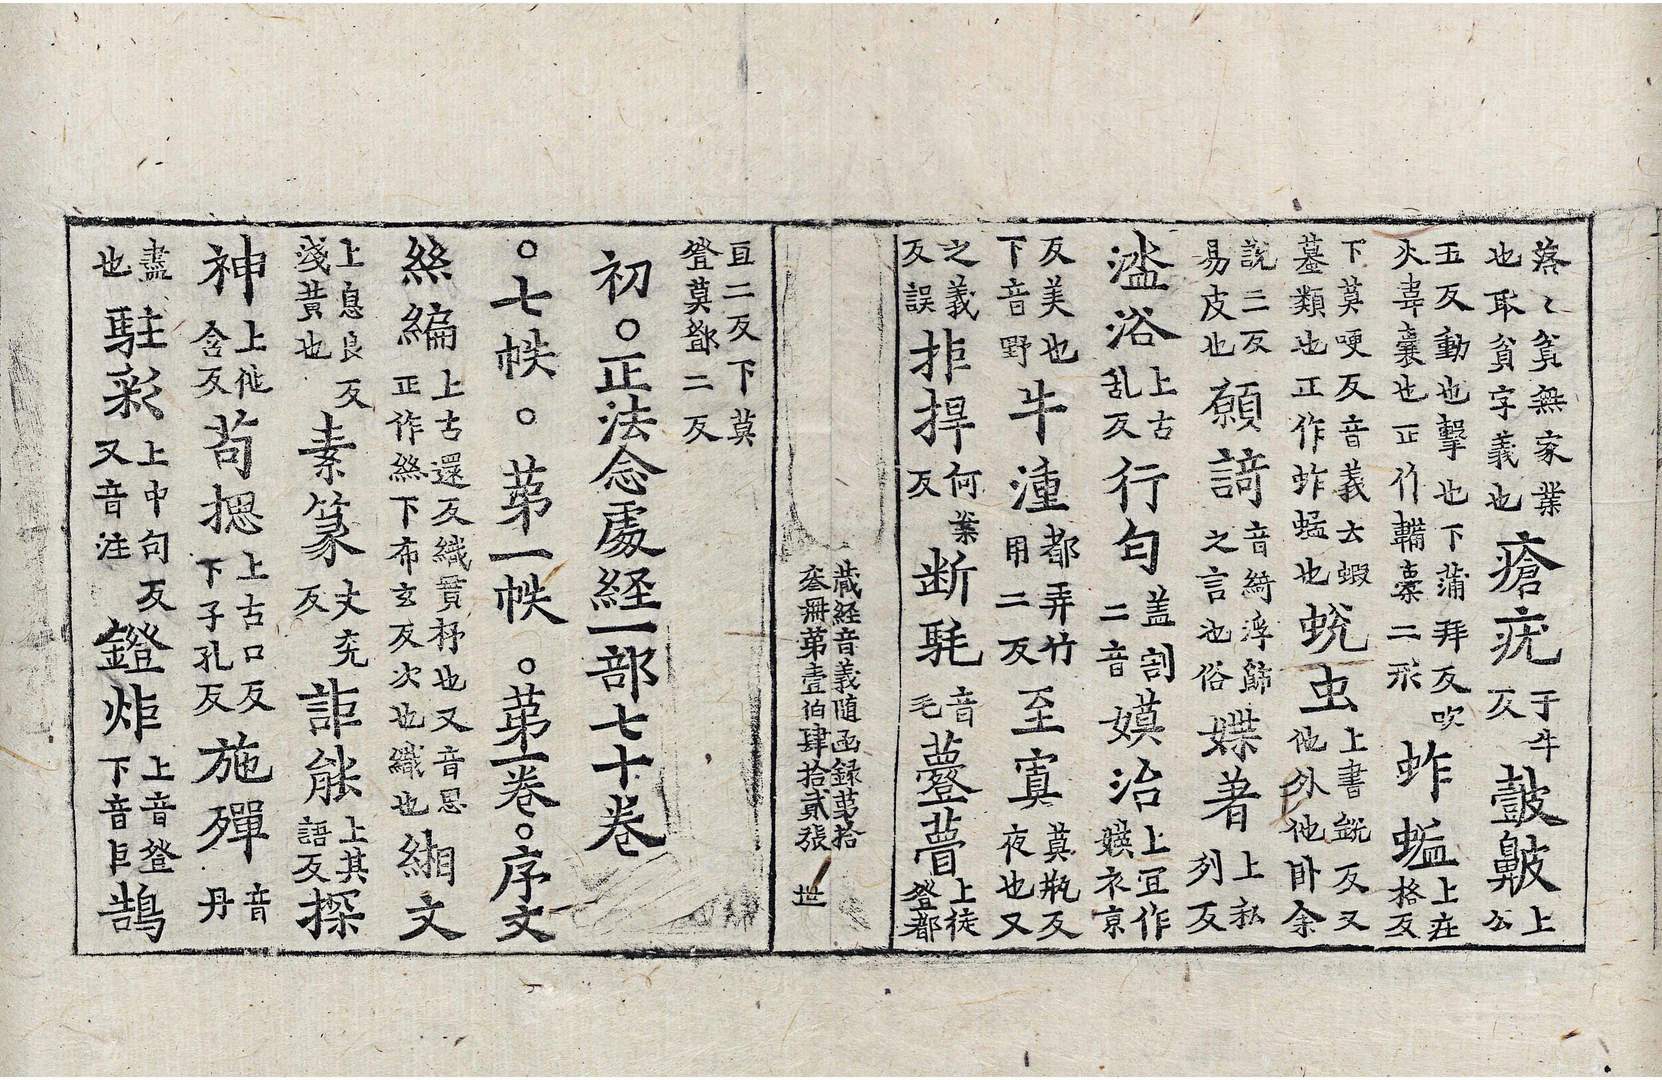 落〻貧無家業也耴貧字義也瘡疣于牛反皷上公
五反動也擊也下蒲拜反吹火韋囊也正作韛橐二形蚱蜢上在格反
下莫哽反音義去蝦蟇類也正作蚱蜢也蛻虫上書銳反又他外他卧余
說二反易皮也願音綺浮餙之言也俗媟著上私列反
盥浴上古乱反行匃盖割二音嫫治上冝作嫫衣京
反美也下音野牛湩都弄竹用二反至寞莫瓶反夜也又
之義反誤拒捍何反業断毦音毛薹瞢上徒登都
蔵経音義随函録第拾
叄冊第壹伯肆拾貳張 世
亘二反下莫登莫鄧二反
初○正法念處経一部七十卷
○七帙○第一帙○第一卷○序文
絲編上古還反織貫杼也又音恩正作絲下布玄反次也織也緗文
上息良反淺黄也素篆丈兖反詎能上其語反探
神上他含反苟摠上古口反下子孔反施殫音丹
盡也駐彩上中句反又音注鐙炬上音登下音巨鵠